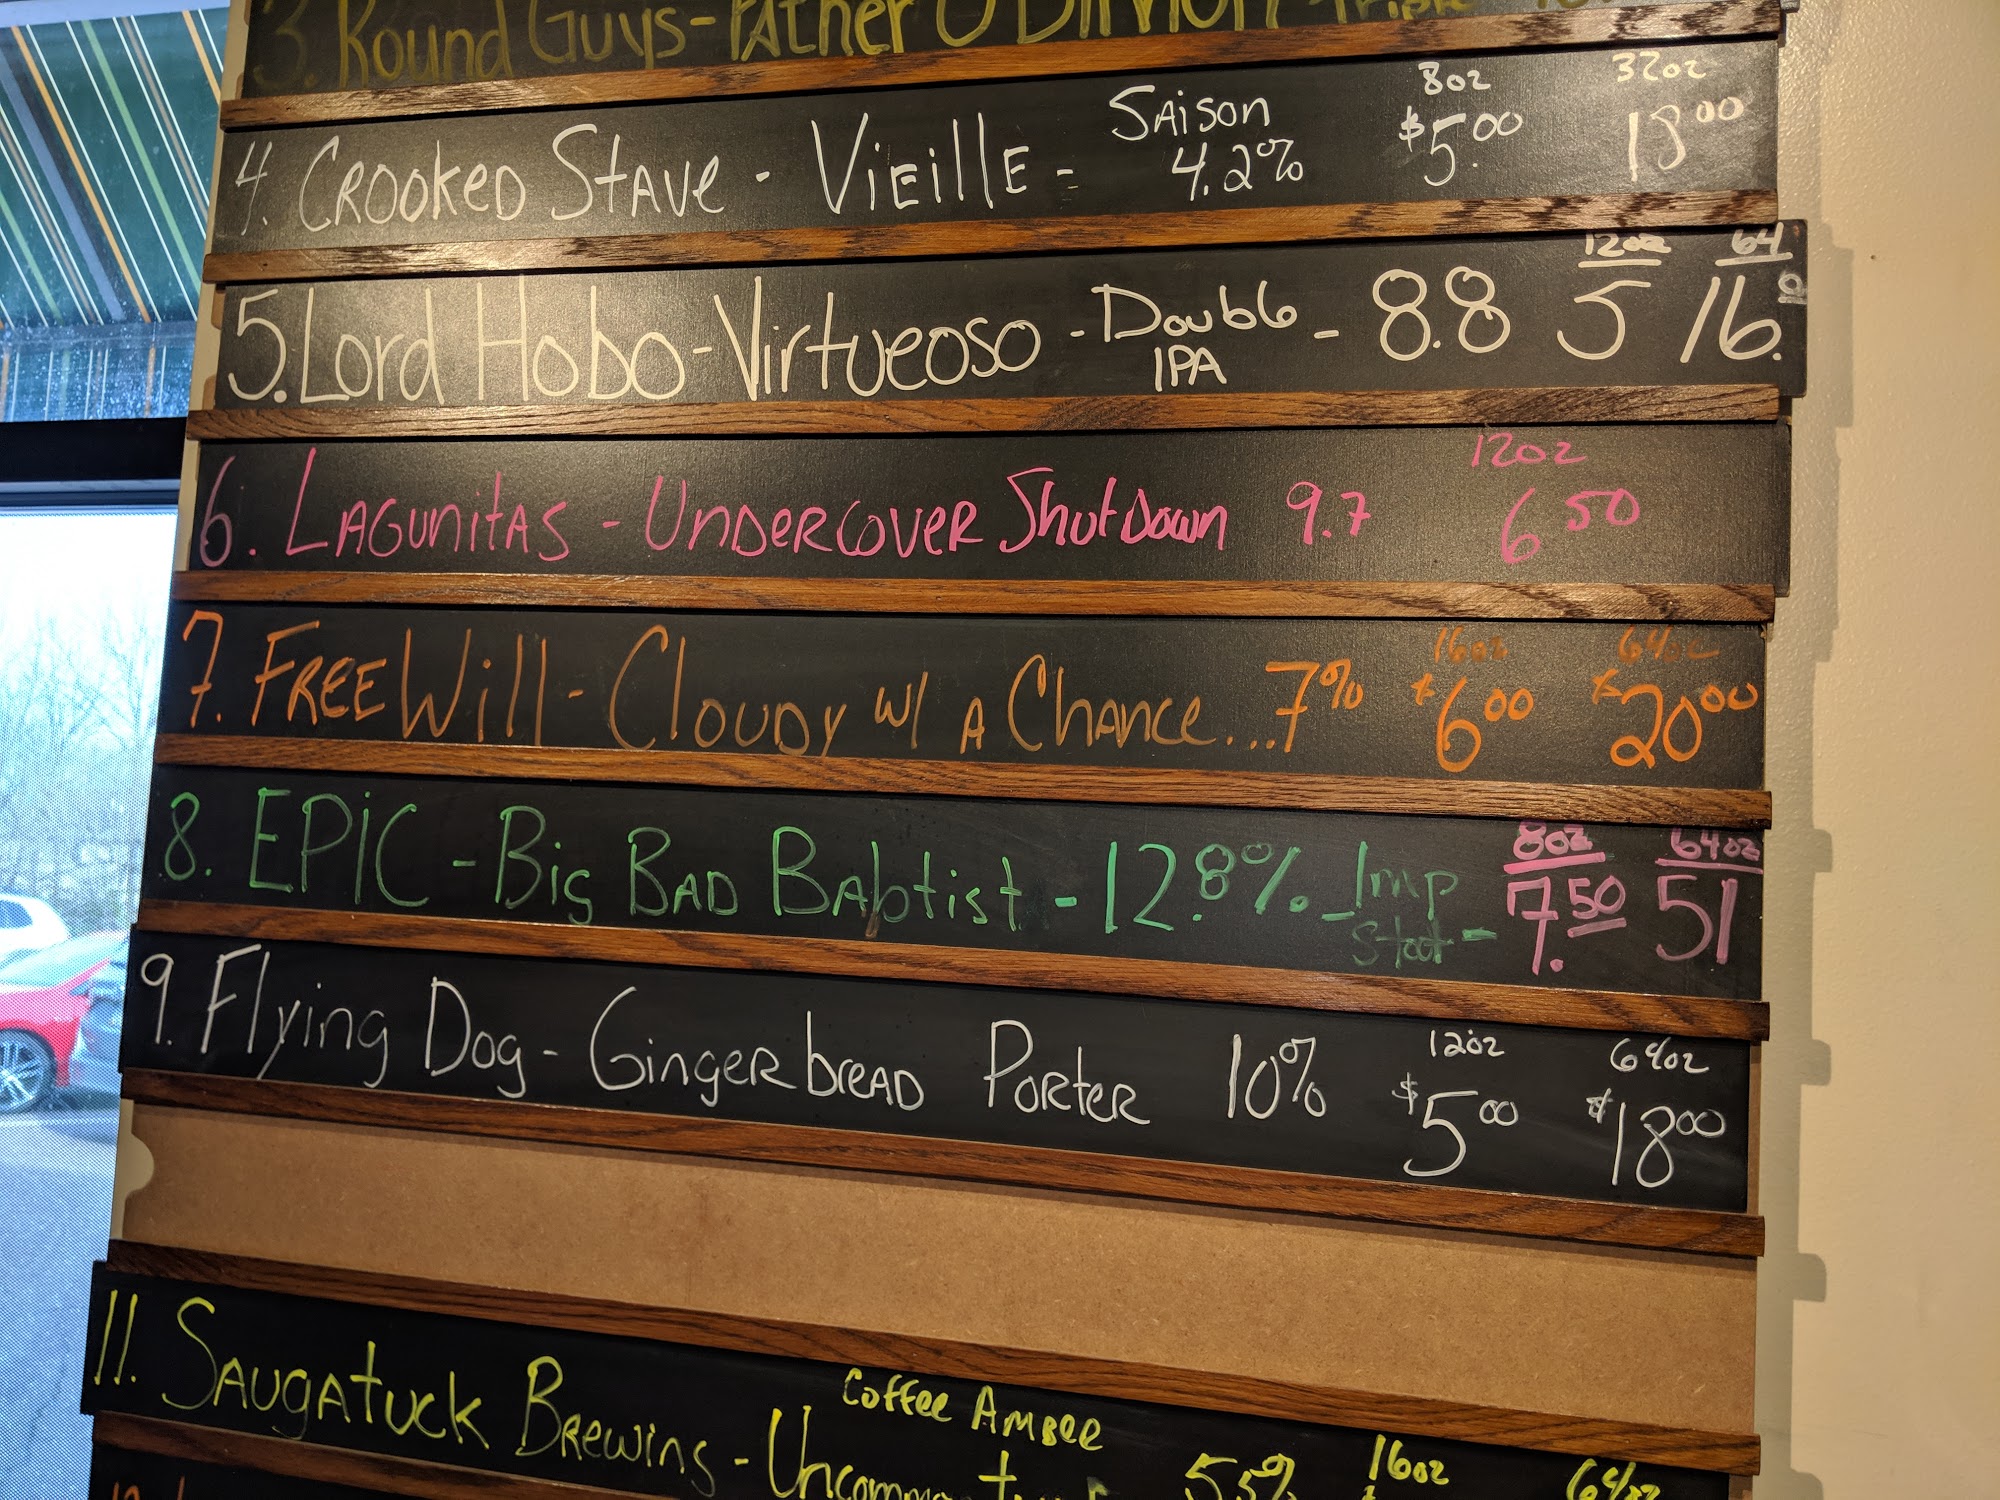 3. Round Guys - Father O'Dimon Triple
4. Crooked Stave - Vieille - Saison 4.2% 8oz $5.00 32oz 18.00
5. Lord Hobo - Virtueoso - Double IPA - 8.8 12oz 5 64 16.
6. Lagunitas - Undercover Shutdown 9.7 12oz 6 50
7. Free Will - Cloudy w/ a Chance... 7% 16oz $6 00 64oz $20 00
8. EPIC - Big Bad Babtist - 12.8% - Imp Stout - 8oz 7.50 64oz 51
9. Flying Dog - Gingerbread Porter 10% 12oz $5 00 64oz $18 00
11. Saugatuck Brewing - Coffee Amber 5.5% 16oz 64oz